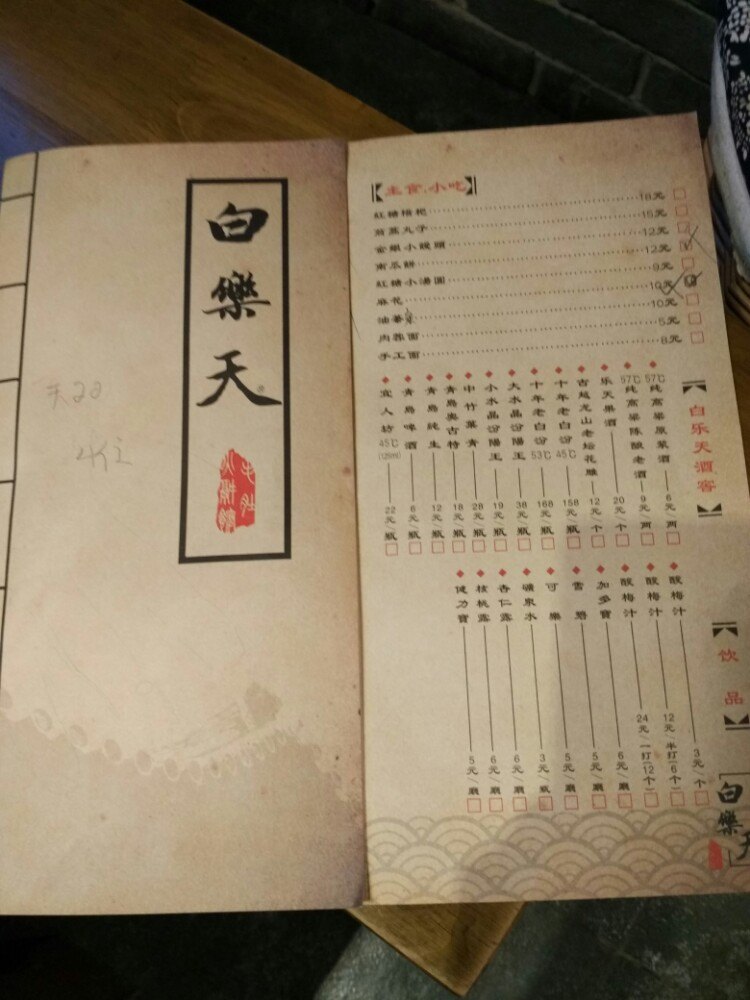 白樂天
天22
4位
主食.小吃
紅糖糍粑 18元
煎蒸丸子 15元
金銀小饅頭 12元
南瓜餅 12元
紅糖小湯圓 9元
麻花 10元
油菶 10元
肉蓉面 5元
手工面 8元
白乐天酒窖
57℃纯高粱原浆酒 6元/两
57℃纯高粱陈酿老酒 9元/两
乐天果酒 20元/个
古越龙山老坛花雕 12元/个
十年老白汾45℃ 158元/瓶
十年老白汾53℃ 168元/瓶
大水晶汾陽王 38元/瓶
小水晶汾陽王 19元/瓶
中竹葉青 28元/瓶
青島奥古特 18元/瓶
青島純生 12元/瓶
青島啤酒 6元/瓶
宜人坊45℃(125ml) 22元/瓶
饮品
酸梅汁 3元/个
酸梅汁 12元/半打(6个)
酸梅汁 24元/一打(12个)
加多寶 6元/廳
雪碧 5元/廳
可樂 5元/廳
礦泉水 3元/瓶
杏仁露 6元/廳
核桃露 6元/廳
健力寶 5元/廳
白樂天